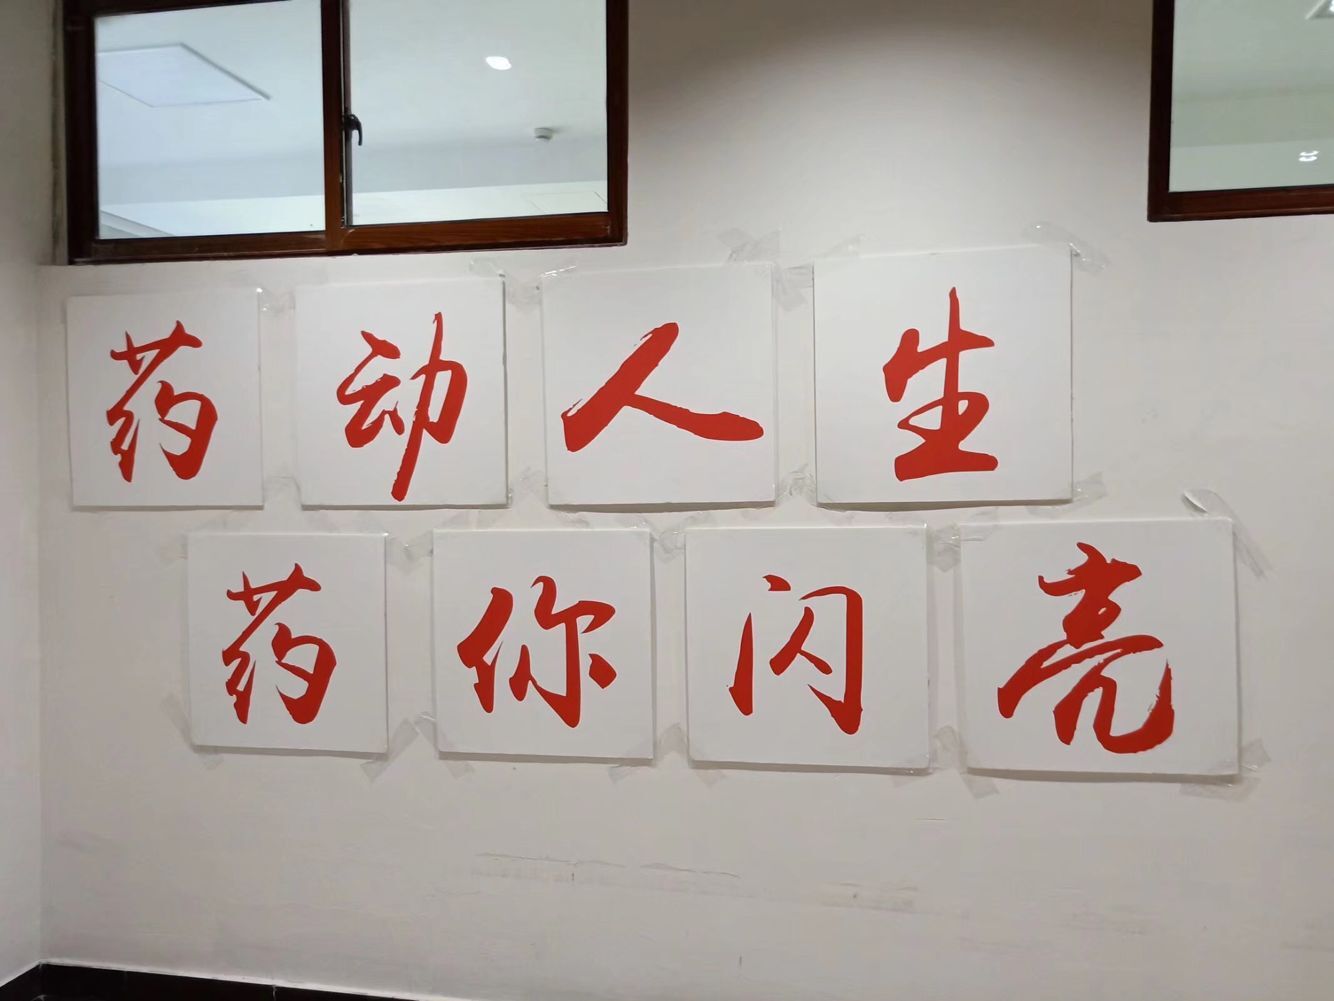 药动人生
药你闪亮